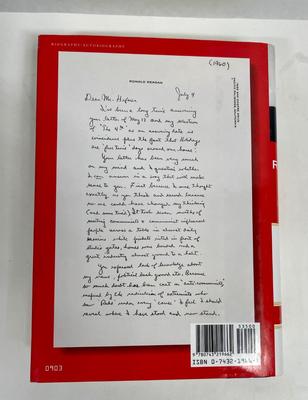 BIOGRAPHY/AUTOBIOGRAPHY
(1960)
RONALD REAGAN
July 4
Dear Mr. Hefner
I've been a long time answering
your letter of May 13 and my selection
of "The 4th" as an answering date is
coincidence plus the fact that Holidays
are "free time" days around our house.
Your letter has been very much
on my mind and I question whether
I can answer in a way that will make
sense to you. First because I once thought
exactly as you think and second because
no one could have changed my thinking
(and some tried). It took seven months of
meeting communists & communist influenced
people across a table in almost daily
sessions while pickets rioted in front of
studio gates, homes were bombed and a
great industry almost ground to a halt.
You expressed lack of knowledge about
my views, political back ground etc. Because
so much doubt has been cast on "anti-communists",
inspired by the radicalism of extremists who
saw "Reds" under every "cause" I feel I should
reveal where I have stood and now stand.
53500
9 780743 219662
ISBN 0-7432-1966-
0903
R